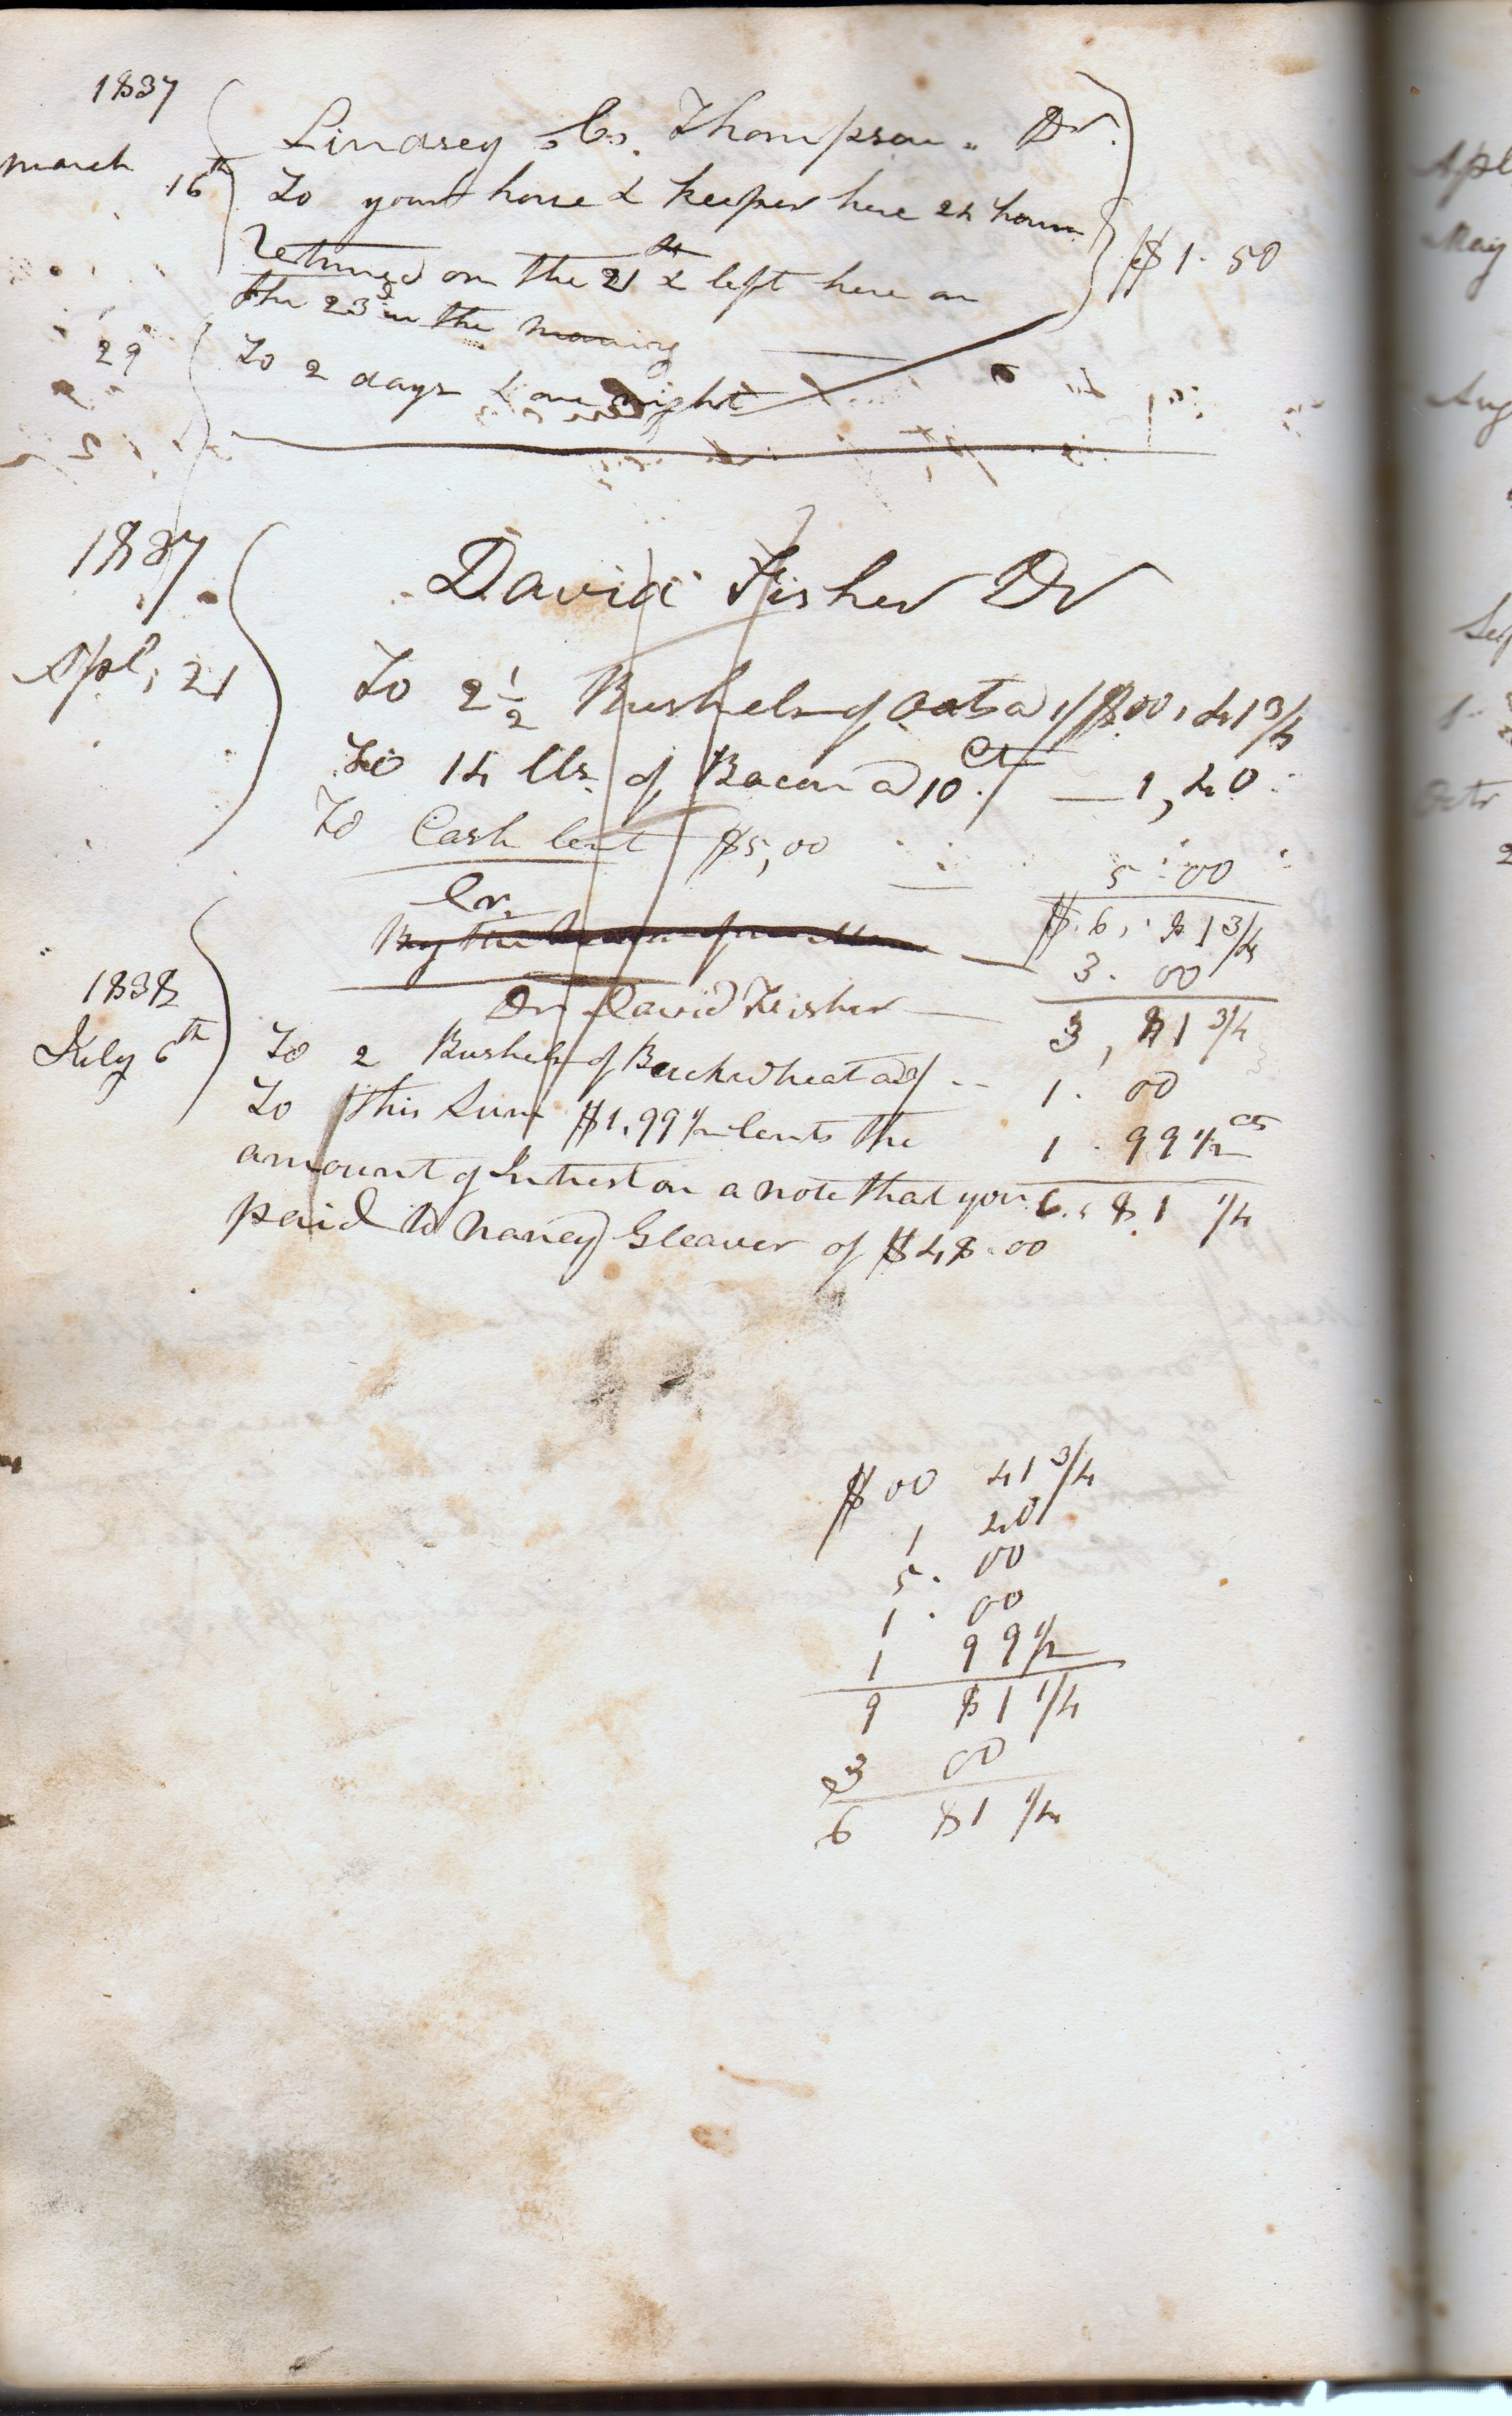 1837
Lindsey C. Thompson. Dr.
March 16th To your horse & keeper here 24 hours
returned on the 21st & left here on $1. 50
the 23d in the morning
29 To 2 days & one night
1837
David Fisher Dr
Apl, 21 To 2 1/2 Bushels of Oats a 1/ $00, 41 3/4
To 14 lbs. of Bacon a 10 Ct 1, 40
To Cash lent $5,00 5.00
Cr. $.6,.81 3/4
By the 3.00
1838 Dr David Fisher 3, 81 3/4
July 6th To 2 Bushels of Buckwheat a 3/ 1.00
To this Sum $1.99 1/2 Cents the 1.99 1/2 cts
amount of Intrest on a note that you 6., 81 1/4
paid to Nancy Gleaver of $48.00
$00 41 3/4
1 40
5. 00
1. 00
1 99 1/2
9 81 1/4
3 00
6 81 1/4
Apl
May
Aug
Sep
1
Octr
2